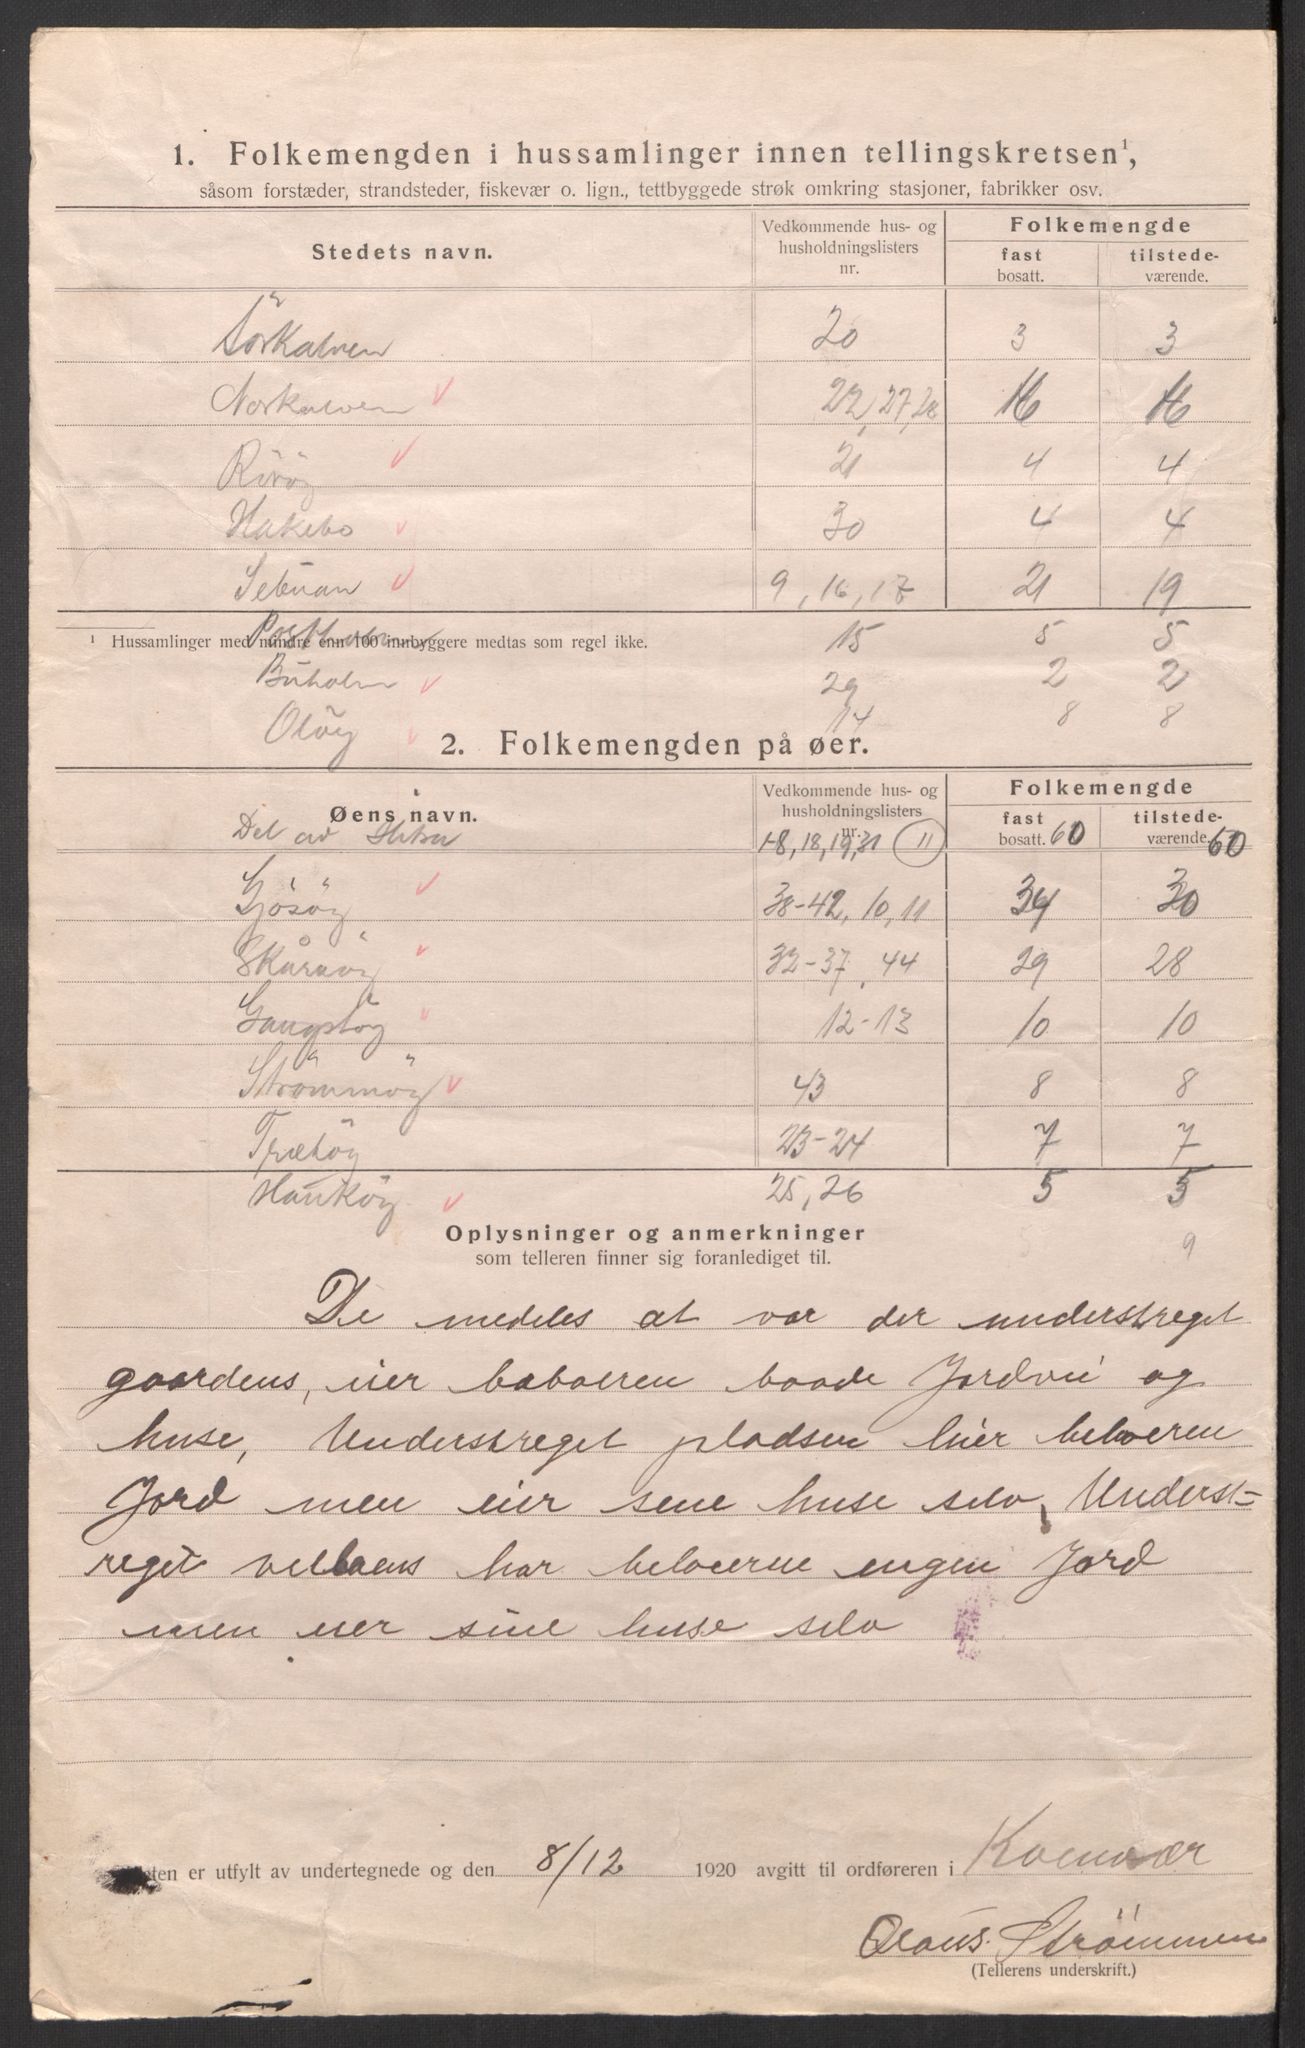 1. Folkemengden i hussamlinger innen tellingskretsen¹,
såsom forstæder, strandsteder, fiskevær o. lign., tettbyggede strøk omkring stasjoner, fabrikker osv.
Stedets navn. Vedkommende hus- og husholdningslisters nr. Folkemengde
fast bosatt. tilstede-værende.
Sörkalven 20 3 3
Norkalven 22, 27, 28 16 16
21 4 4
Hakebo 30 4 4
Setnan 9, 16, 17 21 19
¹ Hussamlinger med mindre enn 100 innbyggere medtas som regel ikke.
Postholmen 15 5 5
Buholm 29 2 2
Olöy 14 8 8
2. Folkemengden på øer.
Øens navn. Vedkommende hus- og husholdningslisters nr. Folkemengde
fast bosatt. tilstede-værende.
Del av Hitra 1-8, 18, 19, 31 (11) 60 60
Gjösöy 38-42, 10, 11 34 30
Skåraöy 32-37, 44 29 28
Gangstöy 12-13 10 10
Strömmöy 43 8 8
Træhöy 23-24 7 7
Hanköy 25, 26 5 5
Oplysninger og anmerkninger
som telleren finner sig foranlediget til.
9
De medeles at vor der understreget
gaardens, eier beboeren baade Jordvei og
huse, Understreget pladsen leier beboeren
Jord men eier sene huse selv, Underst=
reget villaens har beboerne engen Jord
men eier sine huse selv
ten er utfylt av undertegnede og den 8/12 1920 avgitt til ordføreren i Kvenvær
Olaus Strömmen
(Tellerens underskrift.)